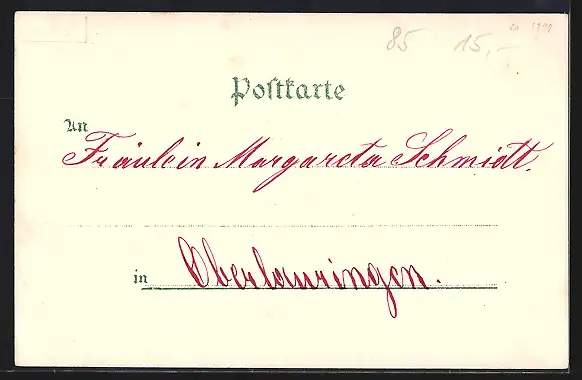 85 15,-
Postkarte
An
Fräulein Margareta Schmidt.
in Oberlauringen.